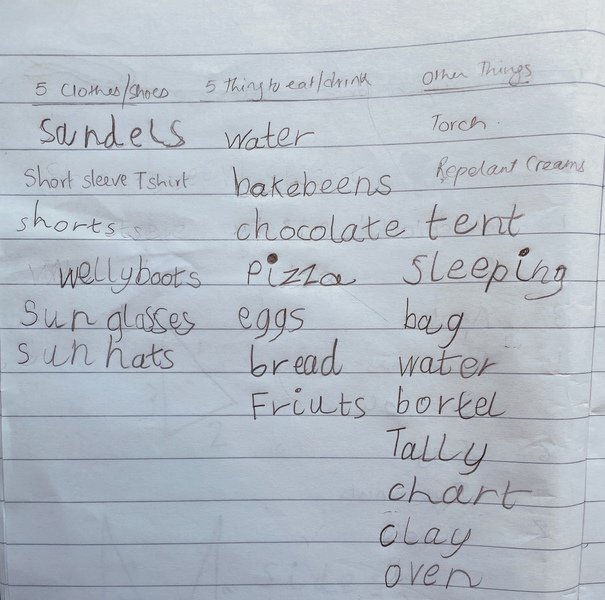 5 Clothes/shoes 5 Thing to eat/drink Other Things
Sandels water Torch.
Short sleeve T shirt bakebeens Repelant Creams
shorts chocolate tent
wellyboots Pizza Sleeping
Sunglasses eggs bag
sun hats bread water
Friuts bortel
Tally
chart
clay
oven